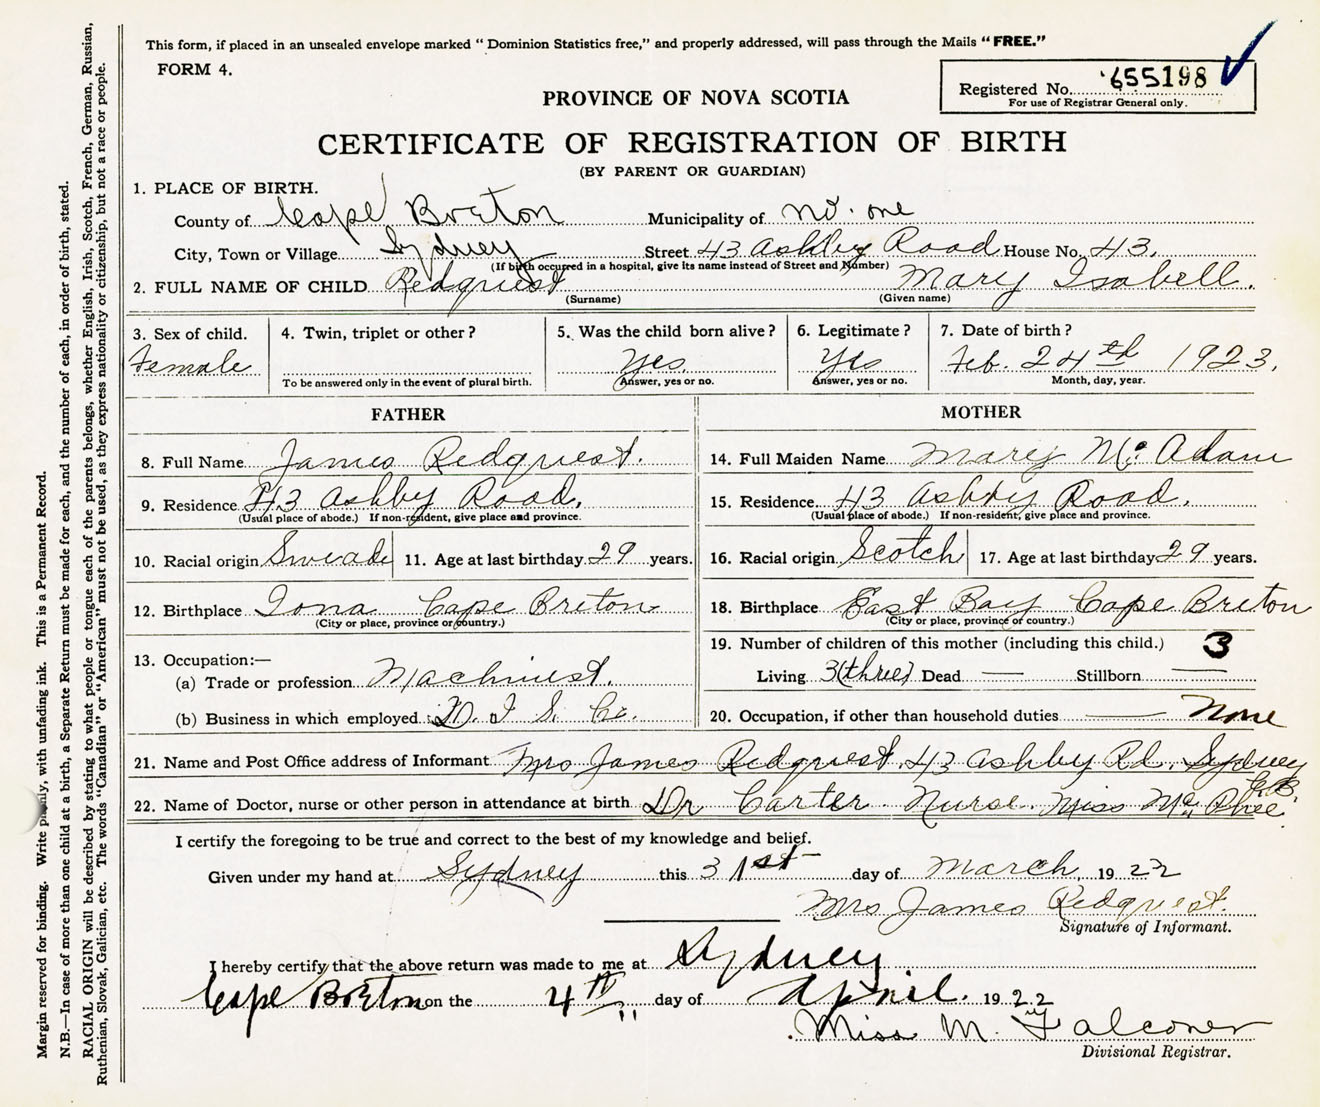 This form, if placed in an unsealed envelope marked "Dominion Statistics free," and properly addressed, will pass through the Mails "FREE."
FORM 4.
Registered No. 655198
For use of Registrar General only.
PROVINCE OF NOVA SCOTIA
CERTIFICATE OF REGISTRATION OF BIRTH
(BY PARENT OR GUARDIAN)
1. PLACE OF BIRTH.
County of Cape Breton Municipality of No. one
City, Town or Village Sydney Street 43 Ashby Road House No. 43.
(If birth occurred in a hospital, give its name instead of Street and Number)
2. FULL NAME OF CHILD Redquest Mary Isabell.
(Surname) (Given name)
3. Sex of child. 4. Twin, triplet or other? 5. Was the child born alive? 6. Legitimate? 7. Date of birth?
Female Yes. Yes Feb. 24th 1923.
To be answered only in the event of plural birth. Answer, yes or no. Answer, yes or no. Month, day, year.
FATHER MOTHER
8. Full Name James Redquest. 14. Full Maiden Name Mary Mc Adam
9. Residence 43 Ashby Road. 15. Residence 43 Ashby Road.
(Usual place of abode.) If non-resident, give place and province. (Usual place of abode.) If non-resident, give place and province.
10. Racial origin Sweade 11. Age at last birthday 29 years. 16. Racial origin Scotch 17. Age at last birthday 29 years.
12. Birthplace Iona Cape Breton 18. Birthplace East Bay Cape Breton
(City or place, province or country.) (City or place, province or country.)
13. Occupation:— 19. Number of children of this mother (including this child.) 3
(a) Trade or profession Machinest. Living 3 (three) Dead — Stillborn —
(b) Business in which employed D. I. S. Co. 20. Occupation, if other than household duties — None
21. Name and Post Office address of Informant Mrs James Redquest. 43 Ashby Rd. Sydney
C.B.
22. Name of Doctor, nurse or other person in attendance at birth Dr Carter. Nurse. Miss Mc Phee.
I certify the foregoing to be true and correct to the best of my knowledge and belief.
Given under my hand at Sydney this 31st day of March, 1922
Mrs James Redquest.
Signature of Informant.
I hereby certify that the above return was made to me at Sydney
Cape Breton on the 4th day of April. 1922
Miss M. Falconer
Divisional Registrar.
Margin reserved for binding. Write plainly, with unfading ink. This is a Permanent Record.
N.B.—In case of more than one child at a birth, a Separate Return must be made for each, and the number of each, in order of birth, stated.
RACIAL ORIGIN will be described by stating to what people or tongue each of the parents belongs, whether English, Irish, Scotch, French, German, Russian,
Ruthenian, Slovak, Galician, etc. The words "Canadian" or "American" must not be used, as they express nationality or citizenship, but not a race or people.